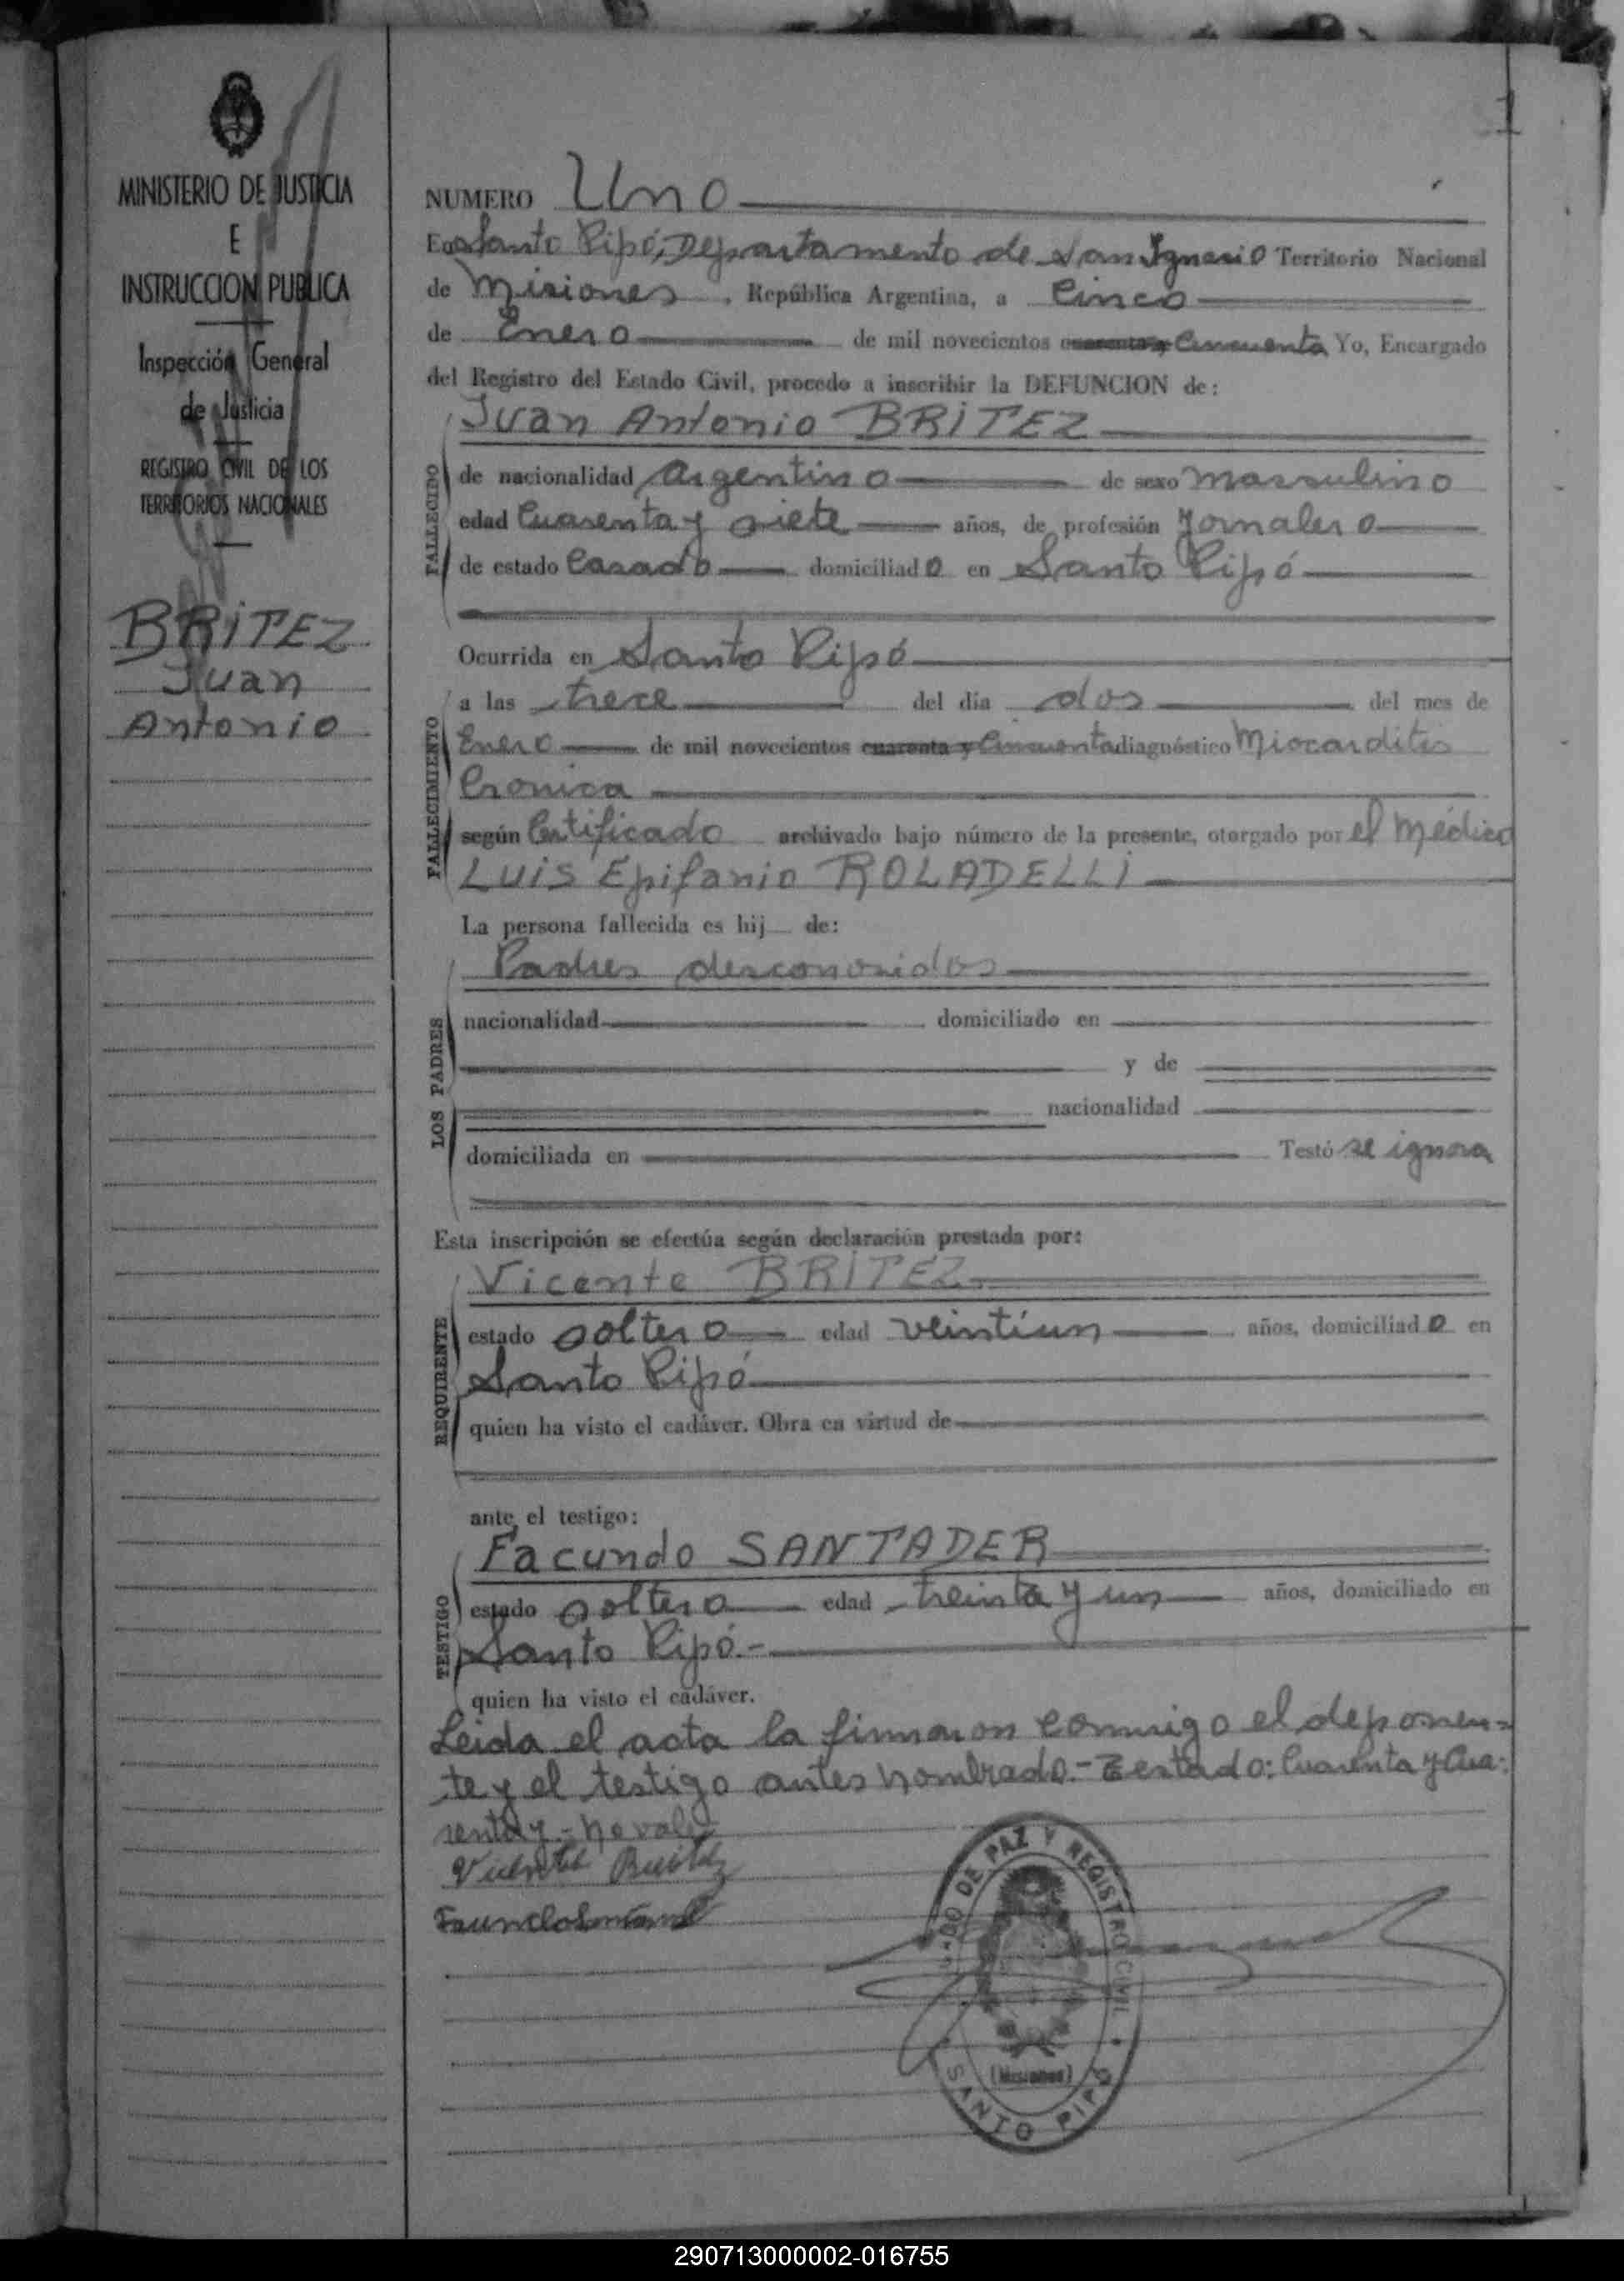 1
MINISTERIO DE JUSTICIA
E
INSTRUCCION PUBLICA
Inspección General
de Justicia
REGISTRO CIVIL DE LOS
TERRITORIOS NACIONALES
BRITEZ
Juan
Antonio
NUMERO Uno
En Santo Pipó, Departamento de San Ignacio Territorio Nacional
de Misiones, República Argentina, a Cinco
de Enero de mil novecientos cuarenta y Cincuenta Yo, Encargado
del Registro del Estado Civil, procedo a inscribir la DEFUNCION de:
Juan Antonio BRITEZ
FALLECIDO
de nacionalidad Argentino de sexo Massulino
edad Cuarenta y siete años, de profesión Jornalero
de estado Casado domiciliado en Santo Pipó
Ocurrida en Santo Pipó
FALLECIMIENTO
a las trece del día dos del mes de
Enero de mil novecientos cuarenta y Cincuenta diagnóstico Miocarditis
Cronica
según Certificado archivado bajo número de la presente, otorgado por el Médico
Luis Epifanio ROLADELLI
La persona fallecida es hij de:
LOS PADRES
Padres desconosidos
nacionalidad domiciliado en
y de
nacionalidad
domiciliada en Testó se ignora
Esta inscripción se efectúa según declaración prestada por:
REQUIRENTE
Vicente BRITEZ
estado soltero edad veintiun años, domiciliado en
Santo Pipó
quien ha visto el cadáver. Obra en virtud de
ante el testigo:
TESTIGO
Facundo SANTADER
estado soltero edad treinta y un años, domiciliado en
Santo Pipó.-
quien ha visto el cadáver.
Leida el acta la firmaron conmigo el deponen-
te y el testigo antes nombrado.- Testado: Cuarenta y Cua-
renta y - no vale
Vicente Britez
JUZGADO DE PAZ Y REGISTRO CIVIL
(Misiones)
SANTO PIPÓ
290713000002-016755